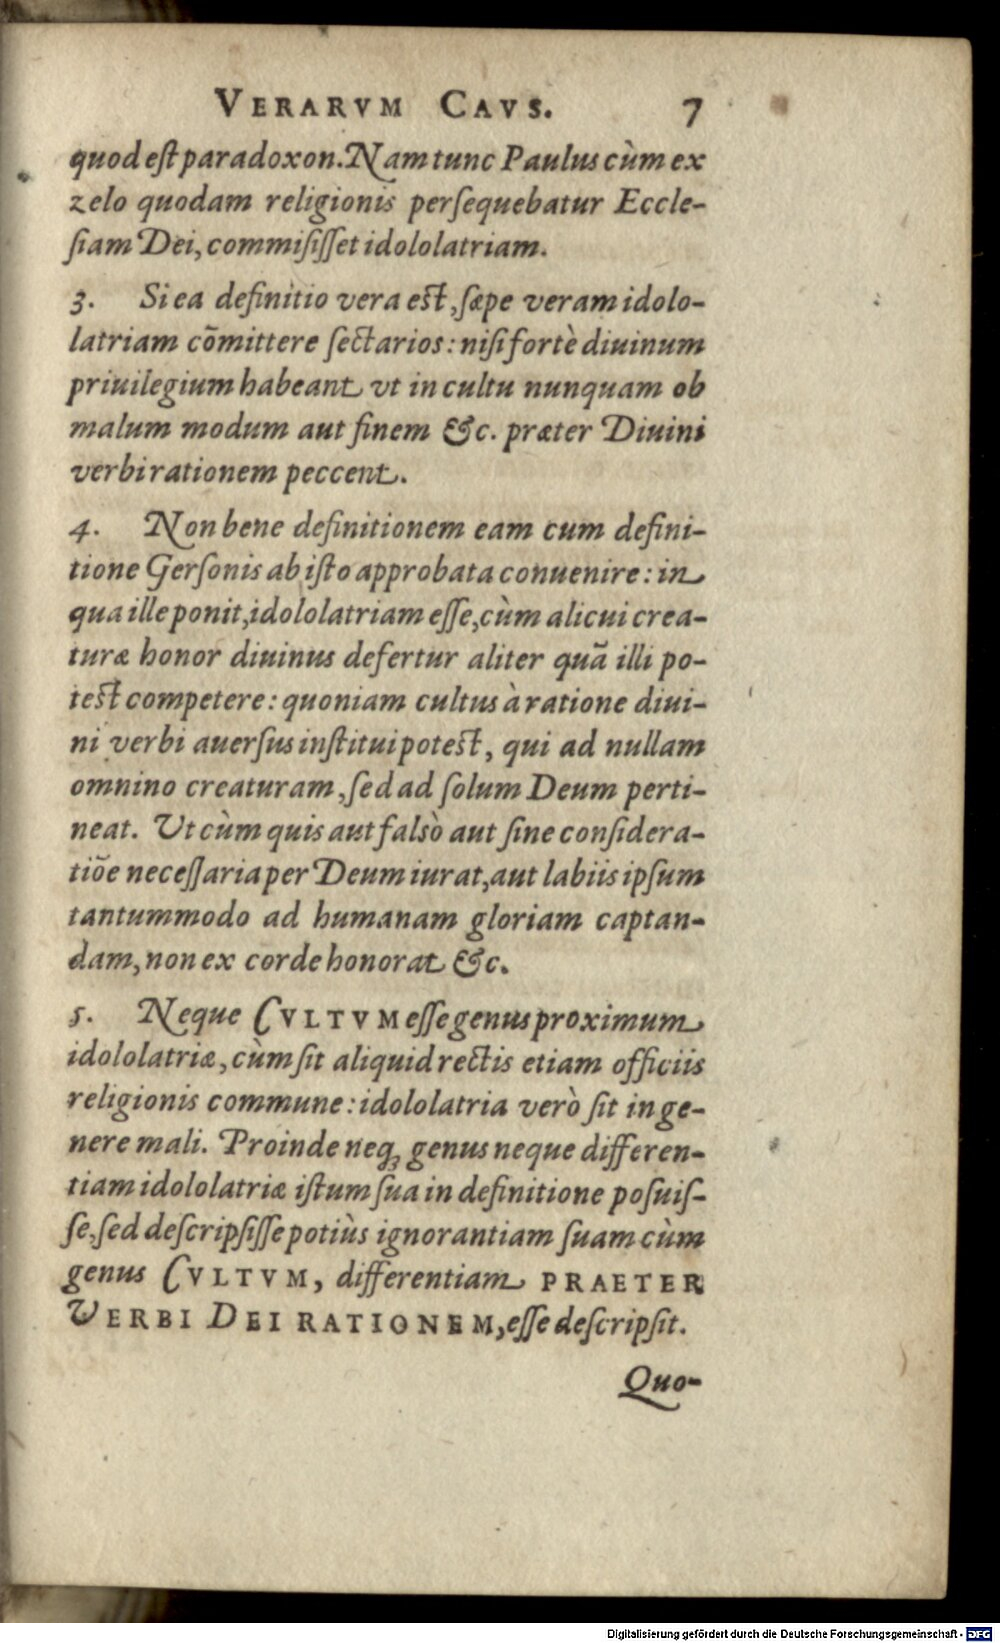 VERARVM CAVS. 7
quod eſt paradoxon. Nam tunc Paulus cùm ex
zelo quodam religionis perſequebatur Eccle-
ſiam Dei, commiſiſſet idololatriam.
3. Si ea definitio vera eſt, ſæpe veram idolo-
latriam cõmittere ſectarios: niſi fortè diuinum
priuilegium habeant vt in cultu nunquam ob
malum modum aut finem &c. præter Diuini
verbi rationem peccent.
4. Non bene definitionem eam cum defini-
tione Gerſonis ab iſto approbata conuenire: in
qua ille ponit, idololatriam eſſe, cùm alicui crea-
turæ honor diuinus defertur aliter quã illi po-
teſt competere: quoniam cultus à ratione diui-
ni verbi auerſus inſtitui poteſt, qui ad nullam
omnino creaturam, ſed ad ſolum Deum perti-
neat. Vt cùm quis aut falsò aut ſine conſidera-
tiõe neceſſaria per Deum iurat, aut labiis ipſum
tantummodo ad humanam gloriam captan-
dam, non ex corde honorat &c.
5. Neque CVLTVM eſſe genus proximum
idololatriæ, cùm ſit aliquid rectis etiam officiis
religionis commune: idololatria verò ſit in ge-
nere mali. Proinde neq; genus neque differen-
tiam idololatriæ iſtum ſua in definitione poſuiſ-
ſe, ſed deſcripſiſſe potiùs ignorantiam ſuam cùm
genus CVLTVM, differentiam PRAETER
VERBI DEI RATIONEM, eſſe deſcripſit.
Quo-
Digitalisierung gefördert durch die Deutsche Forschungsgemeinschaft - DFG